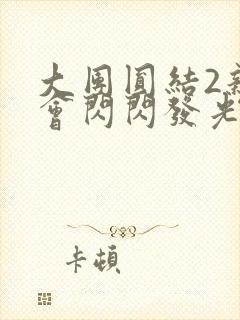 大團圓結2新
會閃閃發光
卡頓